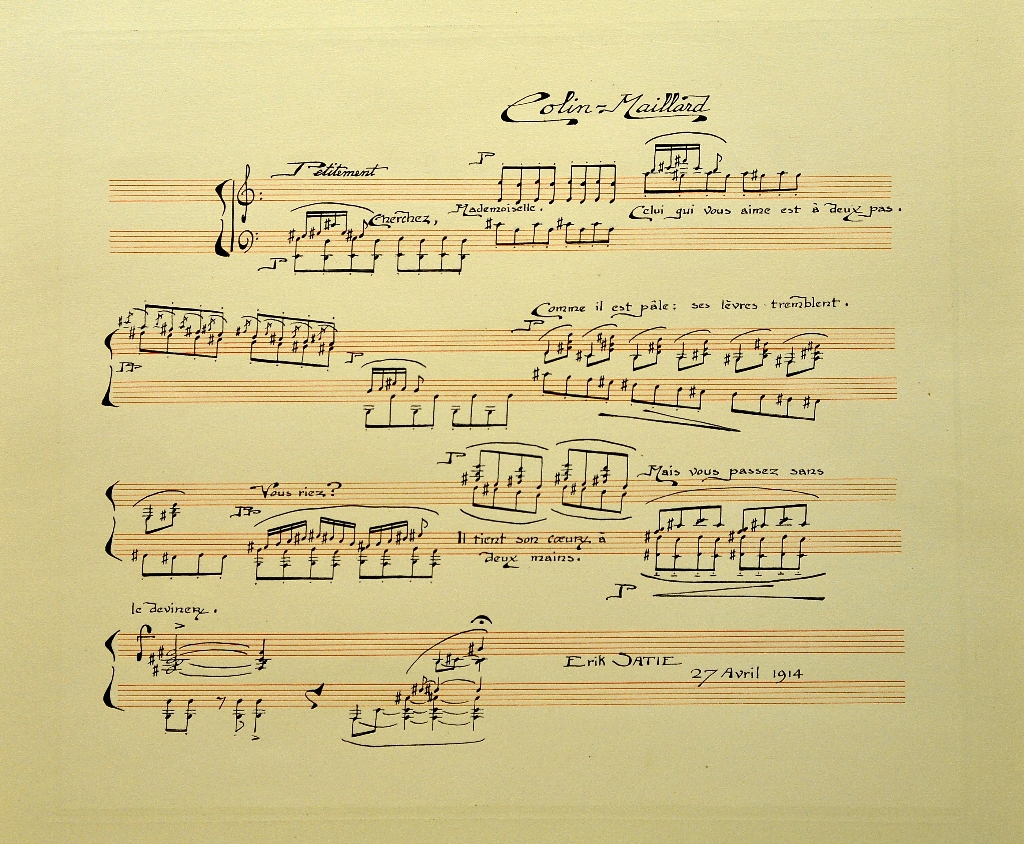 Colin=Maillard
Petitement
P
Cherchez,
Mademoiselle.
Celui qui vous aime est à deux pas.
P
Comme il est pâle: ses lèvres tremblent.
P
PP
P
P
Mais vous passez sans
Vous riez?
PP
Il tient son cœur à
deux mains.
P
le deviner.
f
Erik SATIE
27 Avril 1914